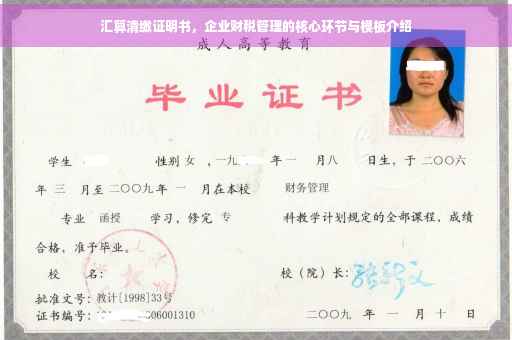 汇算清缴证明书，企业财税管理的核心环节与模板介绍
成人高等教育
毕业证书
学生 性别 女 ，一九 年 一 月 八 日生，于 二〇〇六
年 三 月至 二〇〇九 年 一 月在本校 财务管理
专业 函授 学习，修完 专 科教学计划规定的全部课程，成绩
合格，准予毕业。
校 名： 校（院）长：
批准文号：教计[1998]33号
证书编号： 06001310 二〇〇九 年 一 月 十 日